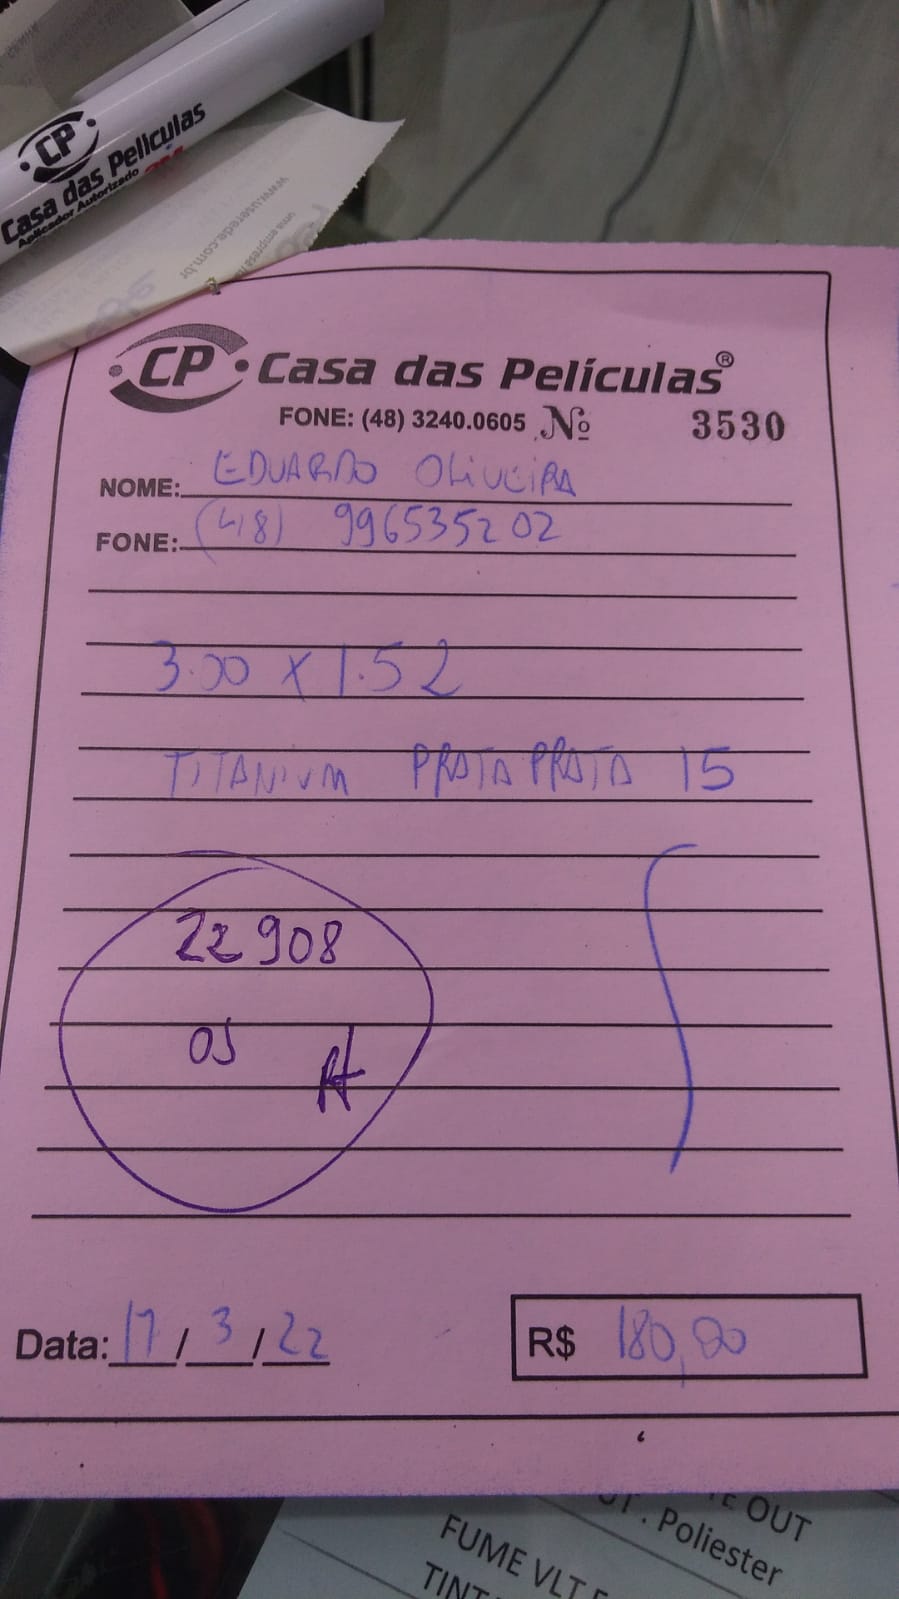 CP
Casa das Películas
Aplicador Autorizado 3M
www.userede.com.br
uma empresa
CP Casa das Películas®
FONE: (48) 3240.0605 Nº 3530
NOME: EDUARDO OLIVEIRA
FONE: (48) 996535202
3.00 x 1.52
TITANIUM PRATA PRATA 15
22908
OS
Data: 17/3/22 R$ 180,00
OUT
. Poliester
FUME VLT
TINT